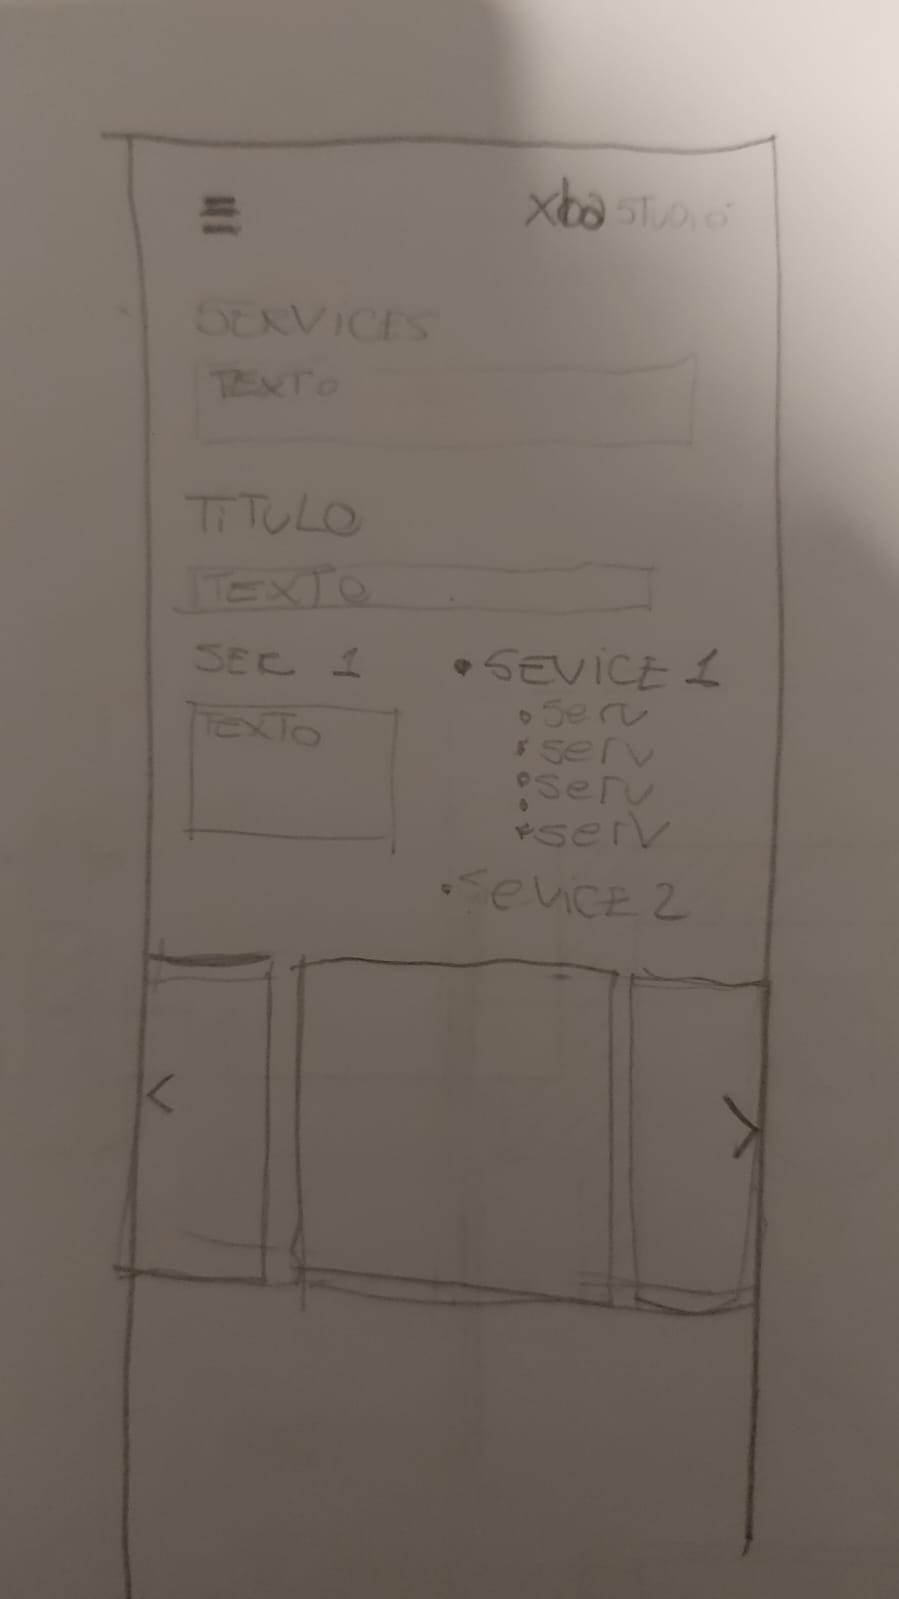 xba STUDIO
SERVICES
TEXTO
TITULO
TEXTO
SER 1
TEXTO
• SEVICE 1
• serv
• serv
• serv
• serv
• SEVICE 2